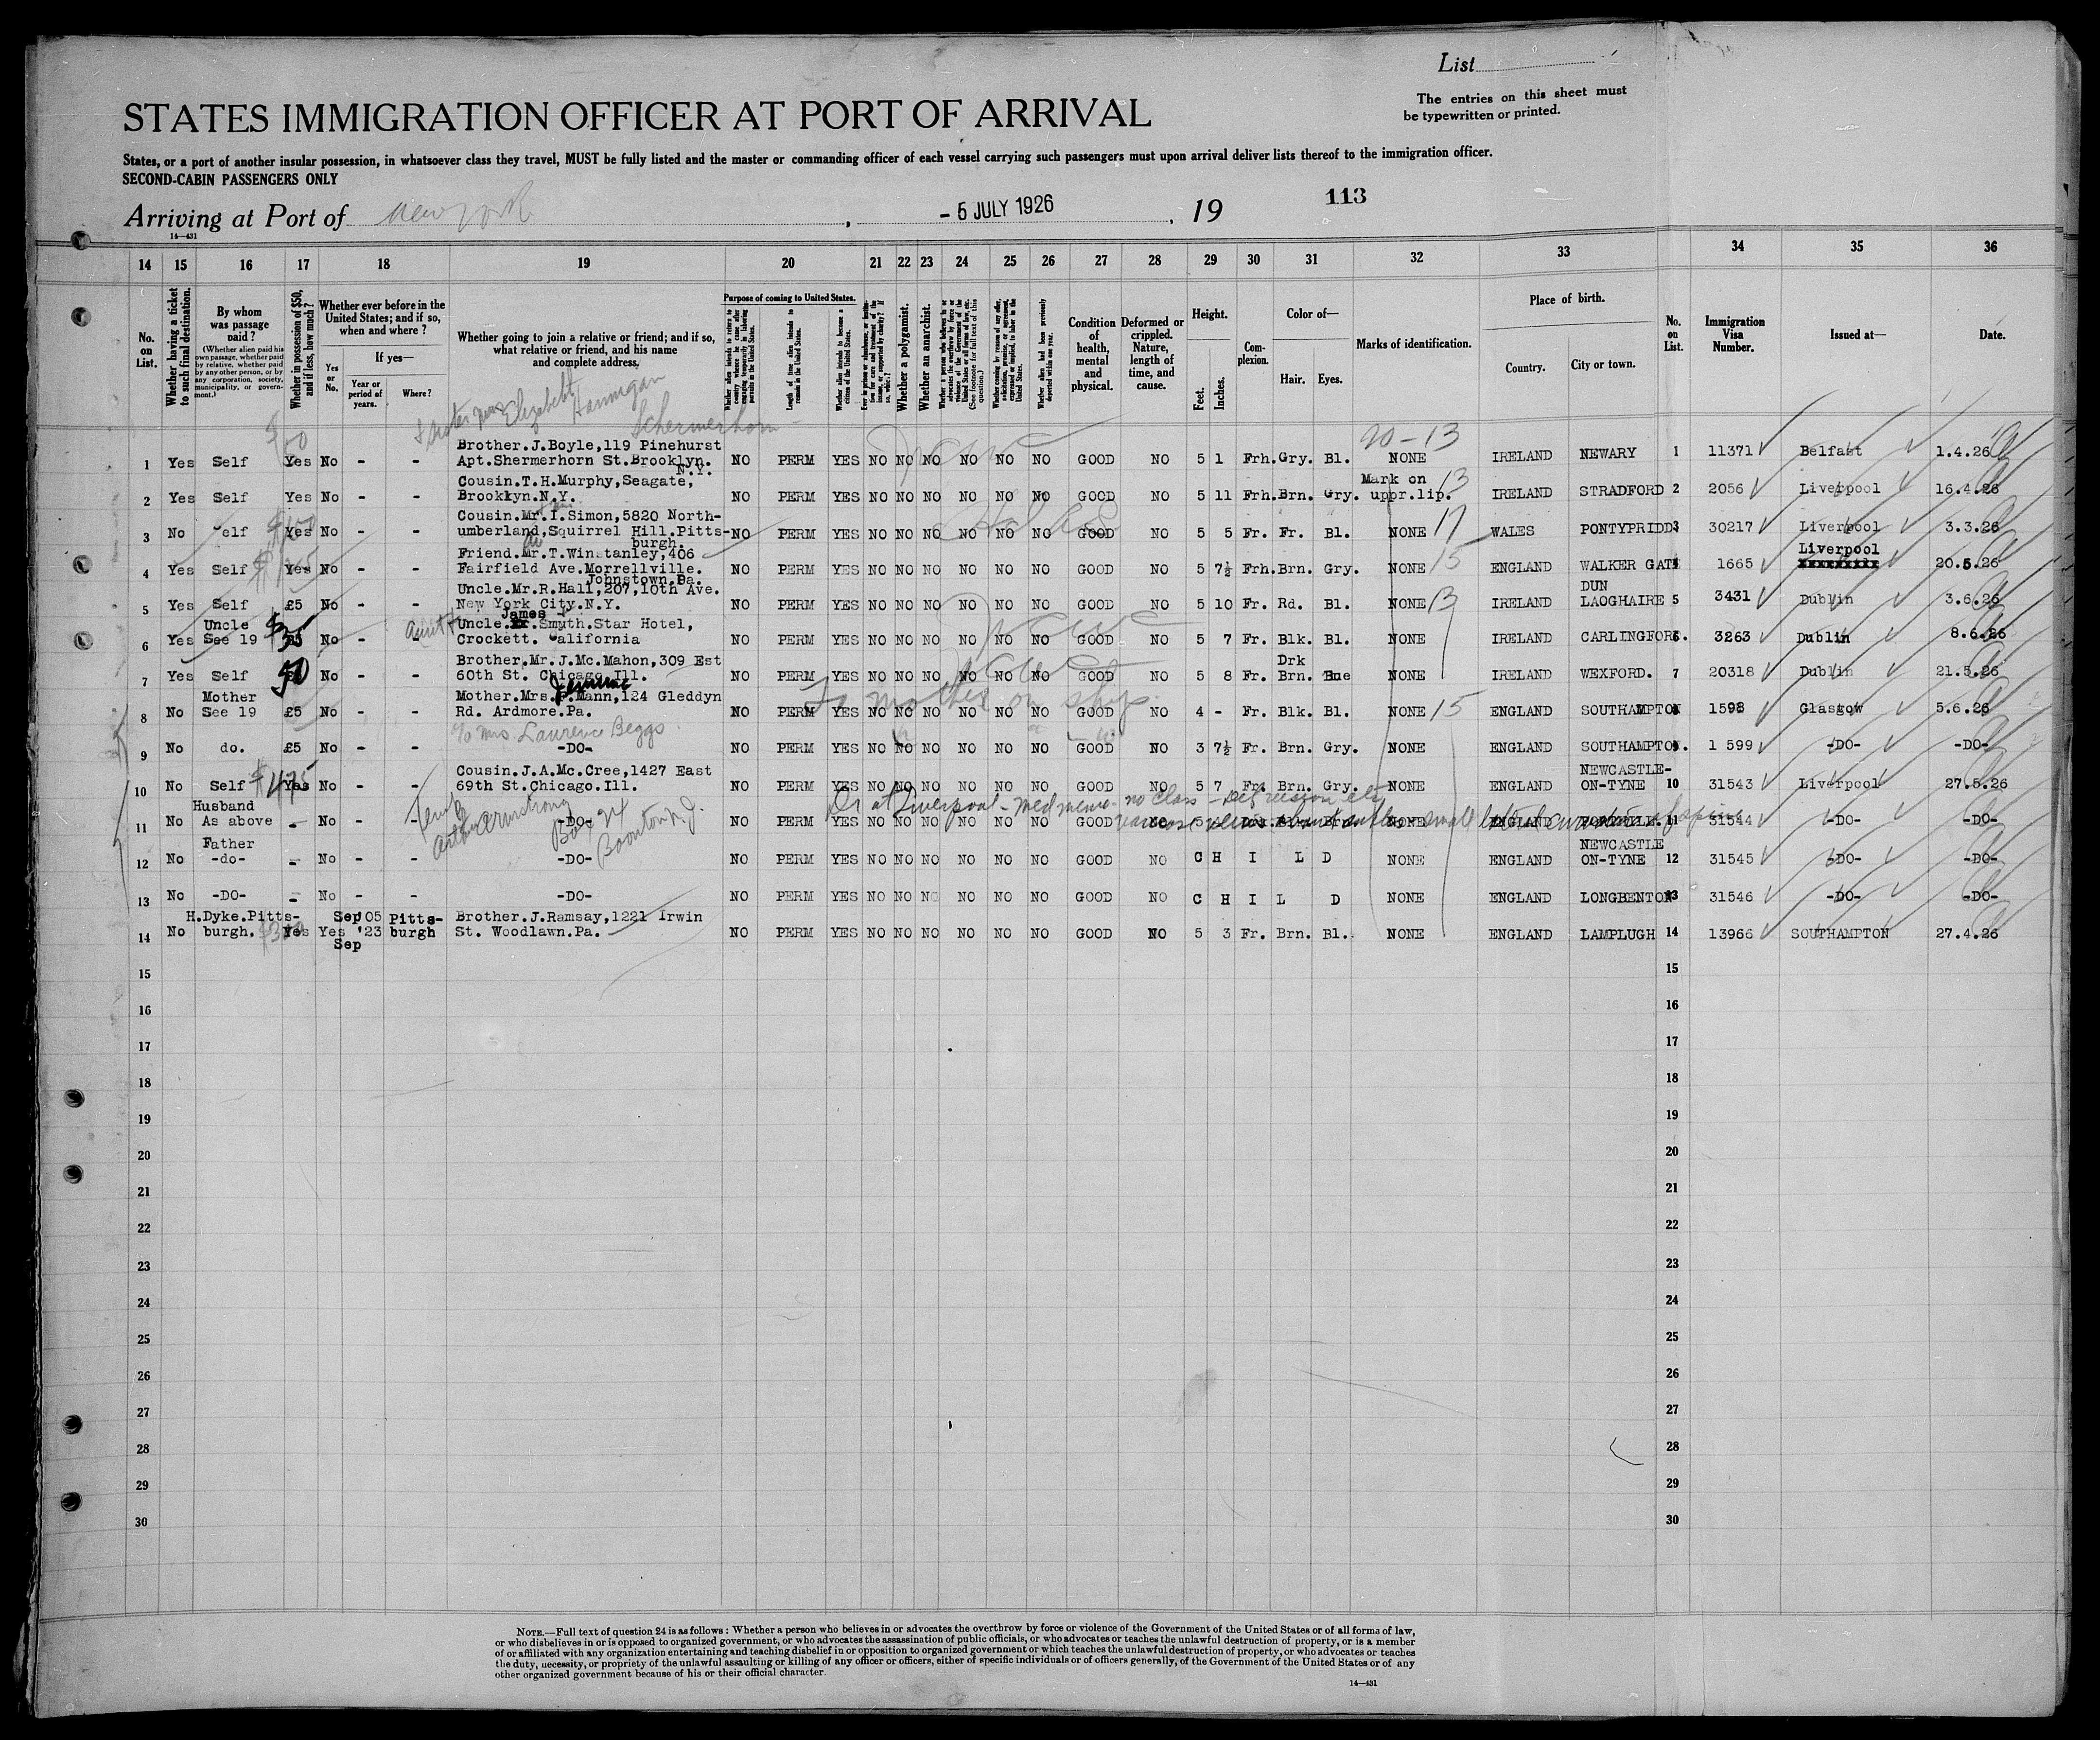 List
The entries on this sheet must
be typewritten or printed.
STATES IMMIGRATION OFFICER AT PORT OF ARRIVAL
States, or a port of another insular possession, in whatsoever class they travel, MUST be fully listed and the master or commanding officer of each vessel carrying such passengers must upon arrival deliver lists thereof to the immigration officer.
SECOND-CABIN PASSENGERS ONLY
Arriving at Port of New York, - 5 JULY 1926, 19 113
14—431
14 15 16 17 18 19 20 21 22 23 24 25 26 27 28 29 30 31 32 33 34 35 36
No. on List.
Whether having a ticket to such final destination.
By whom was passage paid?
(Whether alien paid his own passage, whether paid by relative, whether paid by any other person, or by any corporation, society, municipality, or government.)
Whether in possession of $50, and if less, how much?
Whether ever before in the United States; and if so, when and where?
Yes or No.
If yes—
Year or period of years.
Where?
Whether going to join a relative or friend; and if so, what relative or friend, and his name and complete address.
Purpose of coming to United States.
Whether alien intends to return to country whence he came after engaging temporarily in laboring pursuits in the United States.
Length of time alien intends to remain in the United States.
Whether alien intends to become a citizen of the United States.
Whether a polygamist.
Whether an anarchist.
Condition of health, mental and physical.
Deformed or crippled. Nature, length of time, and cause.
Height.
Feet. Inches.
Complexion.
Color of—
Hair. Eyes.
Marks of identification.
Place of birth.
Country. City or town.
No. on List.
Immigration Visa Number.
Issued at—
Date.
Sister Mrs Elizabeth Hannigan
Schermerhorn
20-13
$50
Brother.J.Boyle,119 Pinehurst
1 Yes Self Yes No - - Apt.Shermerhorn St.Brooklyn. NO PERM YES NO NO NO NO NO NO GOOD NO 5 1 Frh. Gry. Bl. NONE IRELAND NEWARY 1 11371 Belfast 1.4.26
N.Y.
Cousin.T.H.Murphy,Seagate, Mark on 13
2 Yes Self Yes No - - Brooklyn.N.Y. NO PERM YES NO NO NO NO NO NO GOOD NO 5 11 Frh. Brn. Gry. uppr.lip. IRELAND STRADFORD 2 2056 Liverpool 16.4.26
Cousin.Mr.I.Simon,5820 North-
3 No Self Yes No - - umberland,Squirrel Hill.Pitts- NO PERM YES NO NO NO NO NO NO GOOD NO 5 5 Fr. Fr. Bl. NONE 17 WALES PONTYPRIDD 3 30217 Liverpool 3.3.26
burgh.
Friend.Mr.T.Winstanley,406 Liverpool
4 Yes Self Yes No - - Fairfield Ave.Morrellville. NO PERM YES NO NO NO NO NO NO GOOD NO 5 7½ Frh. Brn. Gry. NONE 15 ENGLAND WALKER GATE 4 1665 20.5.26
Johnstown.Pa.
Uncle.Mr.R.Hall,207,10th Ave. DUN
5 Yes Self £5 No - - New York City.N.Y. NO PERM YES NO NO NO NO NO NO GOOD NO 5 10 Fr. Rd. Bl. NONE 13 IRELAND LAOGHAIRE 5 3431 Dublin 3.6.26
James
Uncle Uncle.Mr.Smyth.Star Hotel,
6 Yes See 19 $35 No - Aunt Crockett. California NO PERM YES NO NO NO NO NO NO GOOD NO 5 7 Fr. Blk. Bl. NONE IRELAND CARLINGFORD. 6 3263 Dublin 8.6.26
Brother.Mr.J.Mc.Mahon,309 Est Drk
7 Yes Self 50 No - - 60th St. Chicago.Ill. NO PERM YES NO NO NO NO NO NO GOOD NO 5 8 Fr. Brn. Bue NONE IRELAND WEXFORD. 7 20318 Dublin 21.5.26
Jemima
To mother on ship
Mother Mother.Mrs.F.Mann,124 Gleddyn
8 No See 19 £5 No - - Rd. Ardmore.Pa. NO PERM YES NO NO NO NO NO NO GOOD NO 4 - Fr. Blk. Bl. NONE 15 ENGLAND SOUTHAMPTON 8 1598 Glasgow 5.6.26
c/o Mrs. Laurence Beggs.
9 No do. £5 No - - -DO- NO PERM YES NO NO NO NO NO NO GOOD NO 3 7½ Fr. Brn. Gry. NONE ENGLAND SOUTHAMPTON. 9 1 599 -DO- -DO-
Cousin.J.A.Mc.Cree,1427 East NEWCASTLE-
10 No Self $475 Yes No - - 69th St.Chicago.Ill. NO PERM YES NO NO NO NO NO NO GOOD NO 5 7 Fr. Brn. Gry. NONE ENGLAND ON-TYNE 10 31543 Liverpool 27.5.26
Arthur Armstrong
Box 94
Boonton N.J.
Dr at Liverpool - med memo - no class
Husband
11 No As above - No - - -DO- NO PERM YES NO NO NO NO NO NO GOOD NO 5 NONE ENGLAND 11 31544 -DO- -DO-
Father NEWCASTLE
12 No -do- - No - - -DO- NO PERM YES NO NO NO NO NO NO GOOD NO C H I L D NONE ENGLAND ON-TYNE 12 31545 -DO- -DO-
13 No -DO- - No - - -DO- NO PERM YES NO NO NO NO NO NO GOOD NO C H I L D NONE ENGLAND LONGBENTON 13 31546 -DO- -DO-
H.Dyke.Pitts- Sep'05 Pitts- Brother.J.Ramsay,1221 Irwin
14 No burgh. Yes Yes '23 burgh St. Woodlawn.Pa. NO PERM YES NO NO NO NO NO NO GOOD NO 5 3 Fr. Brn. Bl. NONE ENGLAND LAMPLUGH 14 13966 SOUTHAMPTON 27.4.26
Sep
15 15
16 16
17 17
18 18
19 19
20 20
21 21
22 22
23 23
24 24
25 25
26 26
27 27
28 28
29 29
30 30
NOTE.—Full text of question 24 is as follows: Whether a person who believes in or advocates the overthrow by force or violence of the Government of the United States or of all forms of law,
or who disbelieves in or is opposed to organized government, or who advocates the assassination of public officials, or who advocates or teaches the unlawful destruction of property, or is a member
of or affiliated with any organization entertaining and teaching disbelief in or opposition to organized government or which teaches the unlawful destruction of property, or who advocates or teaches
the duty, necessity, or propriety of the unlawful assaulting or killing of any officer or officers, either of specific individuals or of officers generally, of the Government of the United States or of any
other organized government because of his or their official character.
14—431